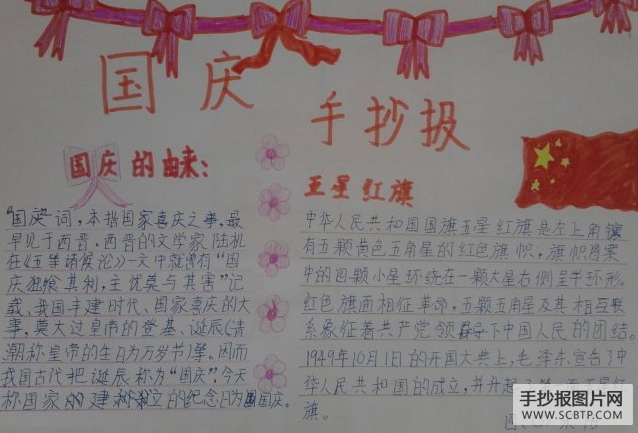 国庆
手抄报
国庆的由来：
"国庆"一词，本指国家喜庆之事，最
早见于西晋。西晋的文学家陆机
在《五等诸侯论》一文中就曾有"国
庆独飨其利，主忧莫与其害"记
载、我国丰建时代、国家喜庆的大
事，莫大过皇帝的登基、诞辰(清
朝称皇帝的生日为万岁节)等。因而
我国古代把诞辰称为"国庆"。今天
称国家建立的纪念日为国庆。
五星红旗
中华人民共和国国旗五星红旗是左上角镶
有五颗黄色五角星的红色旗帜，旗帜图案
中的四颗小星环绕在一颗大星右侧呈半环形。
红色旗面相征革命，五颗五角星及其相互联
系象征着共产党领导下中国人民的团结。
1949年10月1日的开国大典上，毛泽东宣告了中
华人民共和国的成立，并升起了第一面五星红
旗。
手抄报图片网
WWW.SCBTP.COM